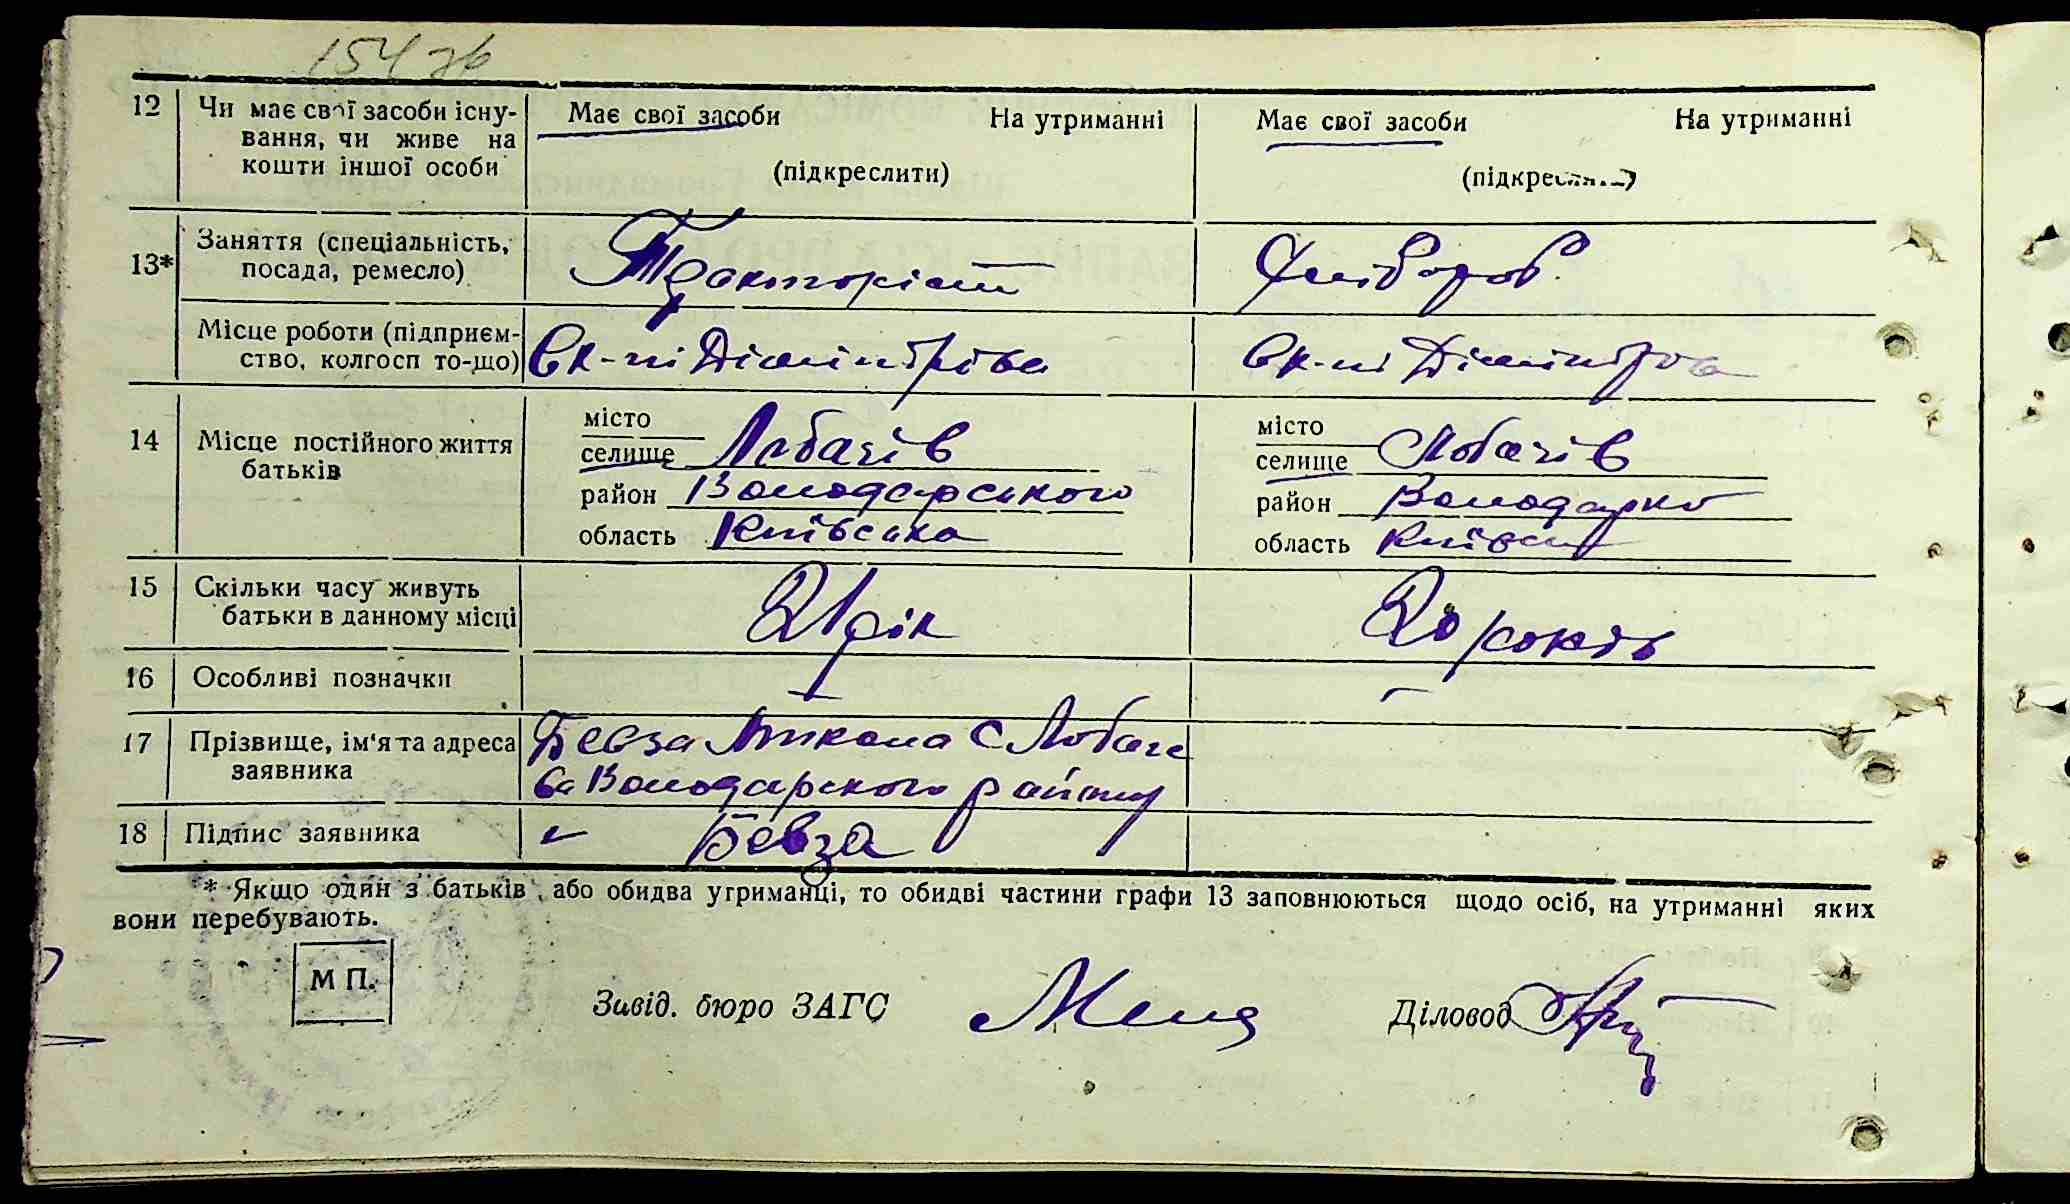 154 зв
12 Чи має свої засоби існу- Має свої засоби На утриманні Має свої засоби На утриманні
вання, чи живе на
кошти іншої особи (підкреслити) (підкреслити)
13* Заняття (спеціальність, Тракторіст
посада, ремесло)
Місце роботи (підприєм-
ство, колгосп то-що) Дімітрова Дімітрова
14 Місце постійного життя місто місто
батьків селище Лобачів селище Лобачів
район Володарського район Володарко
область Київська область
15 Скільки часу живуть 21 рік 20 років
батьки в данному місці
16 Особливі позначки — —
17 Прізвище, ім'я та адреса Бевза Микола С Лобаче
заявника ва Володарского району
18 Підпис заявника Бевза
* Якщо один з батьків, або обидва утриманці, то обидві частини графи 13 заповнюються щодо осіб, на утриманні яких
вони перебувають.
М П.
Завід. бюро ЗАГС Діловод